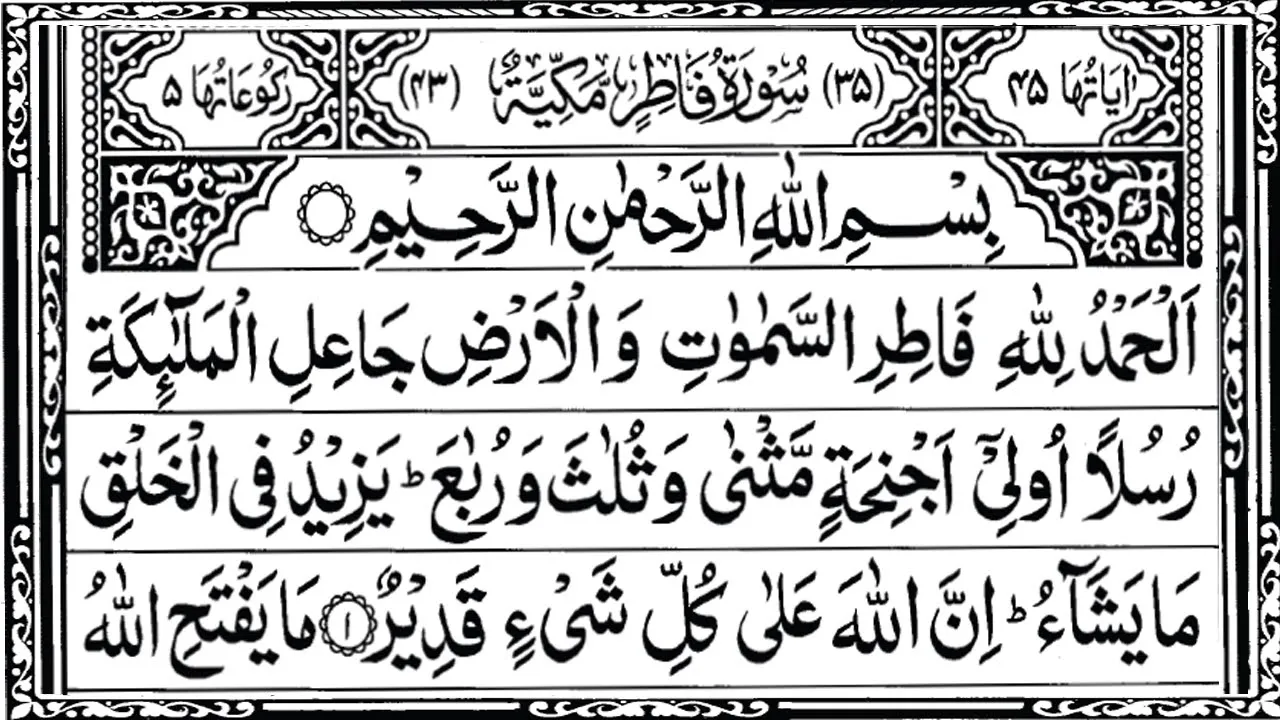 اٰيَاتُهَا ۴۵ (۳۵) سُوۡرَةُ فَاطِرٍ مَّكِّيَّةٌ (۴۳) رُكُوۡعَاتُهَا ۵
بِسۡمِ اللّٰهِ الرَّحۡمٰنِ الرَّحِيۡمِ
اَلۡحَمۡدُ لِلّٰهِ فَاطِرِ السَّمٰوٰتِ وَالۡاَرۡضِ جَاعِلِ الۡمَلٰٓئِكَةِ
رُسُلًا اُولِىۡۤ اَجۡنِحَةٍ مَّثۡنٰى وَثُلٰثَ وَرُبٰعَ ؕ يَزِيۡدُ فِى الۡخَلۡقِ
مَا يَشَآءُ ؕ اِنَّ اللّٰهَ عَلٰى كُلِّ شَىۡءٍ قَدِيۡرٌ ۱ مَا يَفۡتَحِ اللّٰهُ